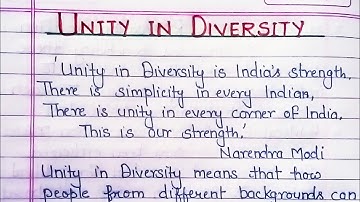 UNITY IN DIVERSITY
'Unity in Diversity is India's strength,
There is simplicity in every Indian,
There is unity in every corner of India,
This is our strength.'
Narendra Modi
Unity in Diversity means that how
people from different backgrounds can